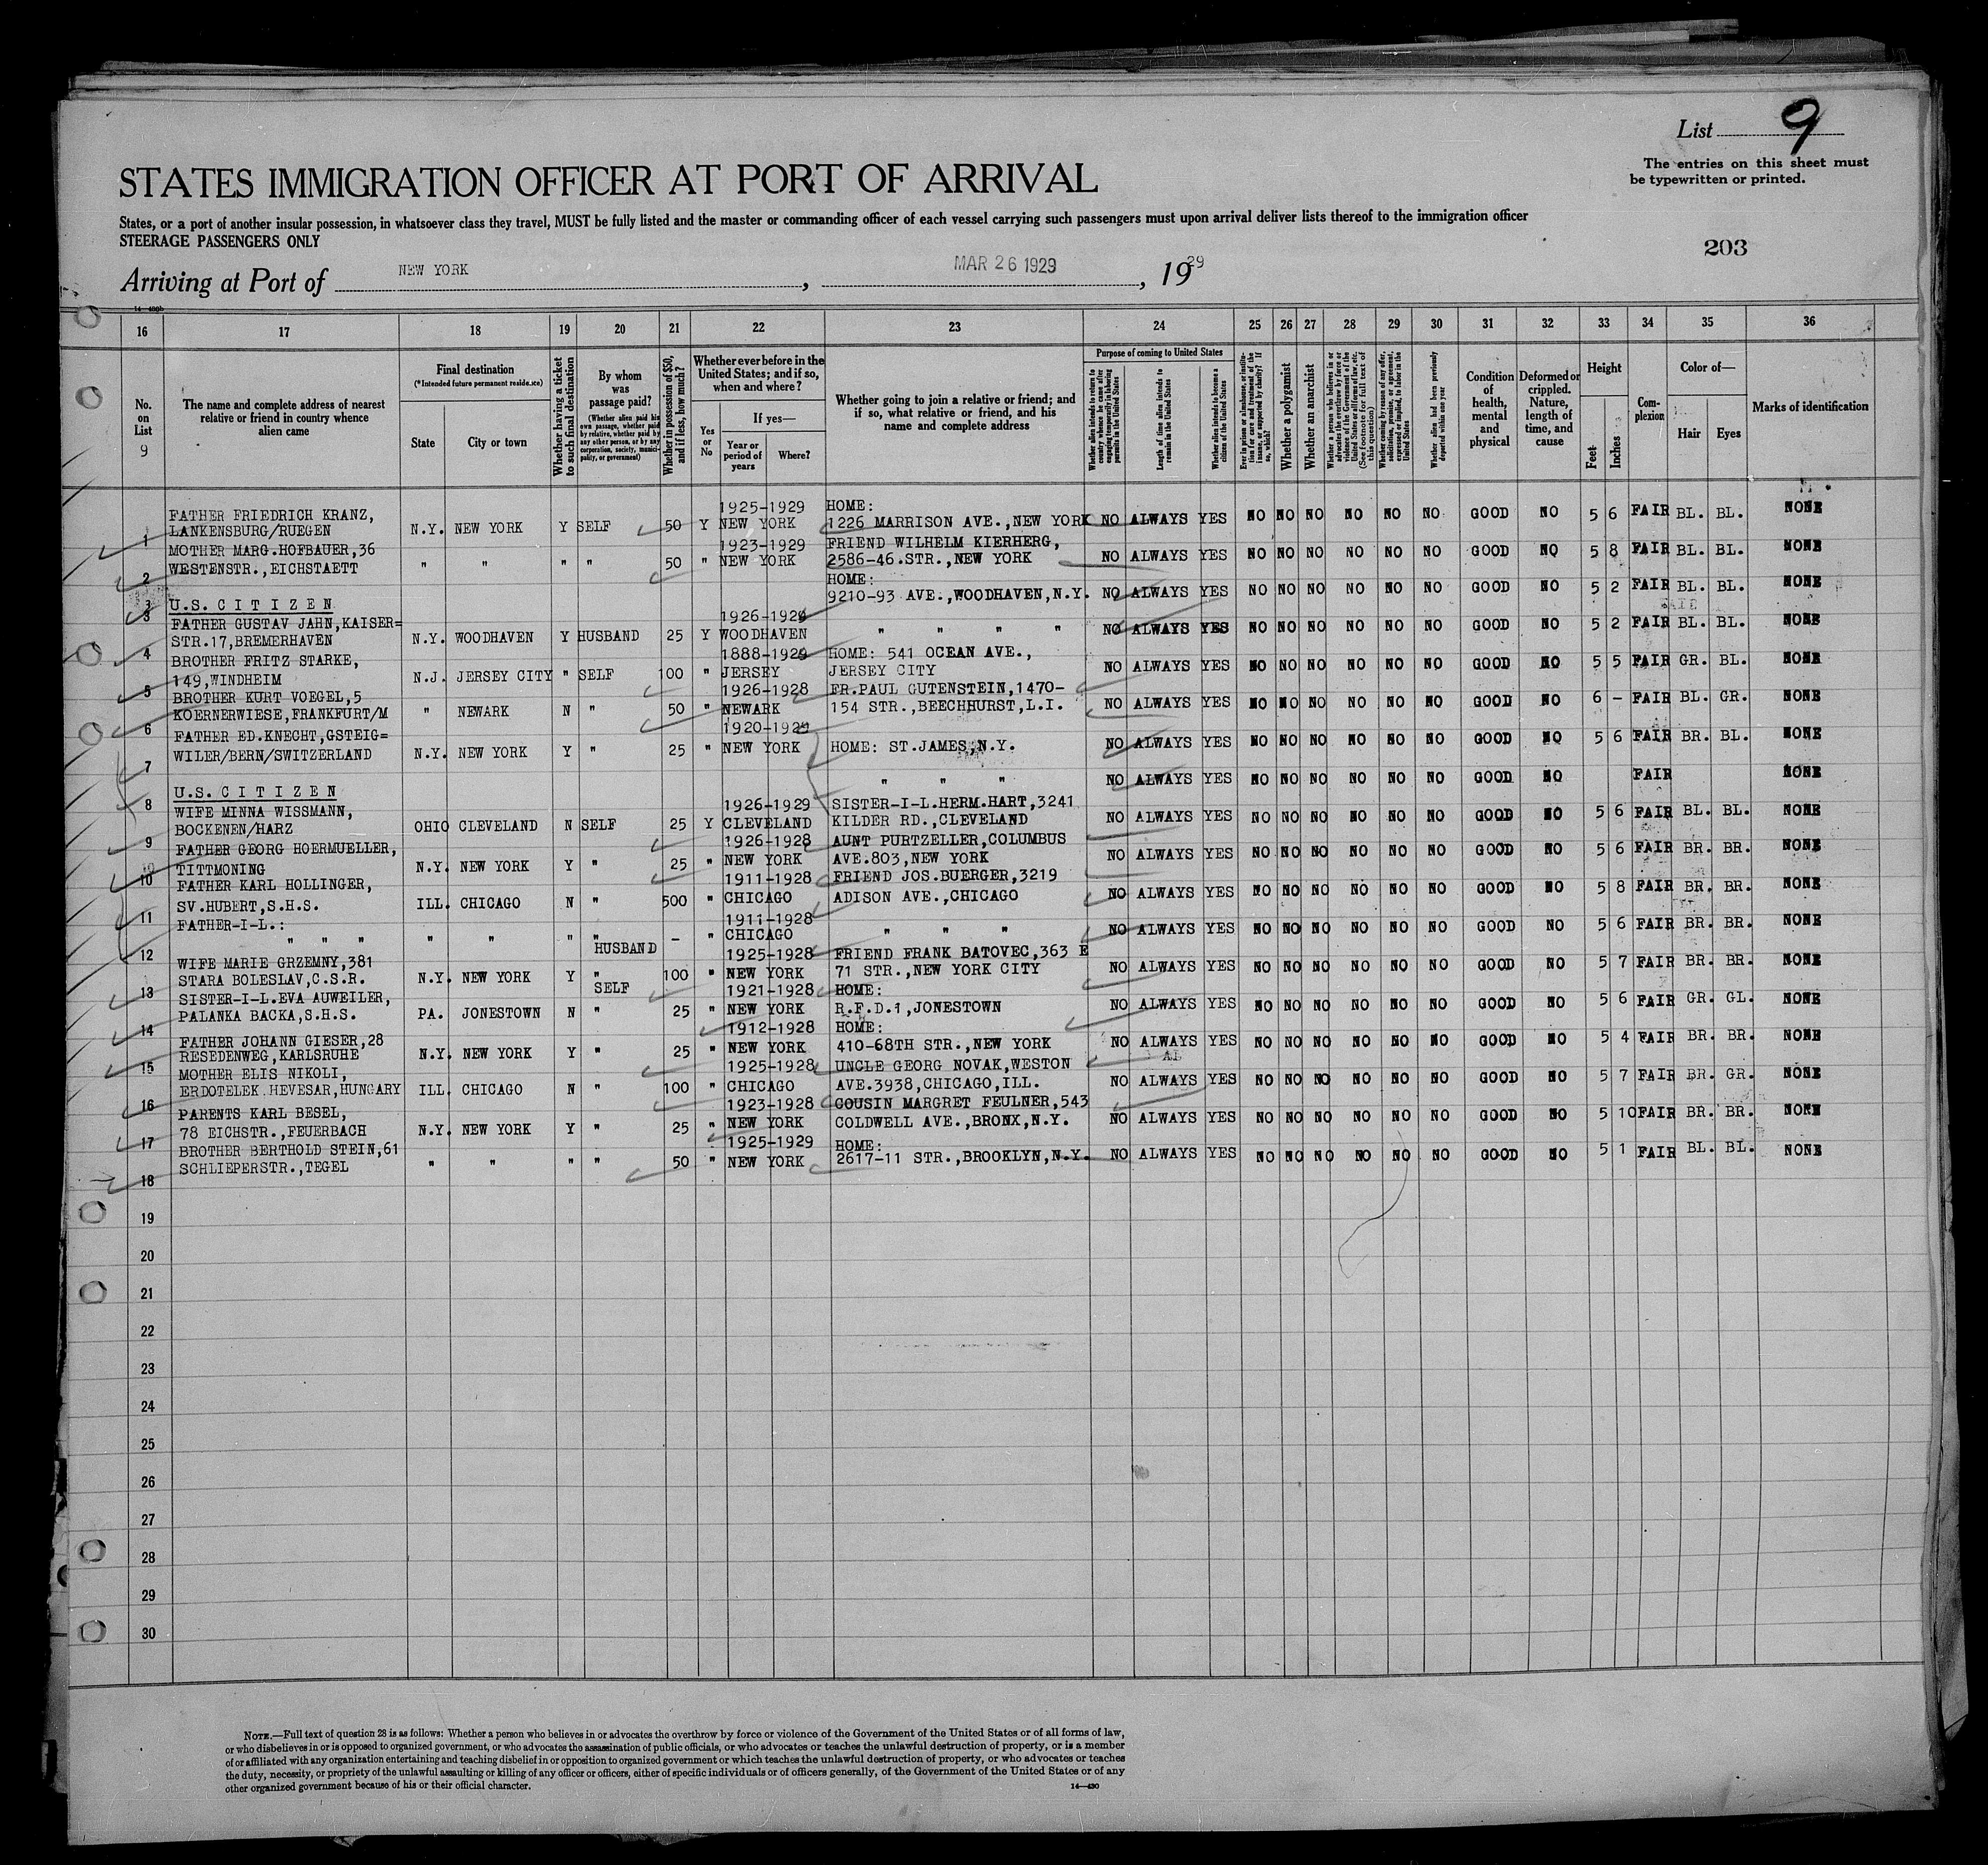 List 9
The entries on this sheet must
be typewritten or printed.
STATES IMMIGRATION OFFICER AT PORT OF ARRIVAL
States, or a port of another insular possession, in whatsoever class they travel, MUST be fully listed and the master or commanding officer of each vessel carrying such passengers must upon arrival deliver lists thereof to the immigration officer
STEERAGE PASSENGERS ONLY
203
Arriving at Port of NEW YORK, MAR 26 1929, 1929
16 17 18 19 20 21 22 23 24 25 26 27 28 29 30 31 32 33 34 35 36
No. on List 9
The name and complete address of nearest relative or friend in country whence alien came
Final destination
(*Intended future permanent residence)
State
City or town
Whether having a ticket to such final destination
By whom was passage paid?
(Whether alien paid his own passage, whether paid by relative, whether paid by any other person, or by any corporation, society, municipality, or government)
Whether in possession of $50, and if less, how much?
Whether ever before in the United States; and if so, when and where?
Yes or No
If yes—
Year or period of years
Where?
Whether going to join a relative or friend; and if so, what relative or friend, and his name and complete address
Purpose of coming to United States
Whether alien intends to return to country whence he came after engaging temporarily in laboring pursuits in the United States
Length of time alien intends to remain in the United States
Whether alien intends to become a citizen of the United States
Ever in prison or almshouse, or institution for care and treatment of the insane, or supported by charity? If so, which?
Whether a polygamist
Whether an anarchist
Whether a person who believes in or advocates the overthrow by force or violence of the Government of the United States or all forms of law, etc. (See footnote for full text of this question)
Whether coming by reason of any offer, solicitation, promise, or agreement, expressed or implied, to labor in the United States
Whether alien had been previously deported within one year
Condition of health, mental and physical
Deformed or crippled. Nature, length of time, and cause
Height
Feet
Inches
Complexion
Color of—
Hair
Eyes
Marks of identification
1 FATHER FRIEDRICH KRANZ, LANKENSBURG/RUEGEN N.Y. NEW YORK Y SELF 50 Y 1925-1929 NEW YORK HOME: 1226 MARRISON AVE.,NEW YORK NO ALWAYS YES NO NO NO NO NO NO GOOD NO 5 6 FAIR BL. BL. NONE
2 MOTHER MARG.HOFBAUER,36 WESTENSTR.,EICHSTAETT " " " " 50 " 1923-1929 NEW YORK FRIEND WILHELM KIERHERG, 2586-46.STR.,NEW YORK NO ALWAYS YES NO NO NO NO NO NO GOOD NO 5 8 FAIR BL. BL. NONE
3 U.S. C I T I Z E N HOME: 9210-93 AVE.,WOODHAVEN,N.Y. NO ALWAYS YES NO NO NO NO NO NO GOOD NO 5 2 FAIR BL. BL. NONE
4 FATHER GUSTAV JAHN,KAISER= STR.17,BREMERHAVEN N.Y. WOODHAVEN Y HUSBAND 25 Y 1926-1929 WOODHAVEN " " " " NO ALWAYS YES NO NO NO NO NO NO GOOD NO 5 2 FAIR BL. BL. NONE
5 BROTHER FRITZ STARKE, 149,WINDHEIM N.J. JERSEY CITY " SELF 100 " 1888-1929 JERSEY HOME: 541 OCEAN AVE., JERSEY CITY NO ALWAYS YES NO NO NO NO NO NO GOOD NO 5 5 FAIR GR. BL. NONE
6 BROTHER KURT VOEGEL,5 KOERNERWIESE,FRANKFURT/M " NEWARK N " 50 " 1926-1928 NEWARK FR.PAUL GUTENSTEIN,1470- 154 STR.,BEECHHURST,L.I. NO ALWAYS YES NO NO NO NO NO NO GOOD NO 6 - FAIR BL. GR. NONE
7 FATHER ED.KNECHT,GSTEIG= WILER/BERN/SWITZERLAND N.Y. NEW YORK Y " 25 " 1920-1929 NEW YORK HOME: ST.JAMES,N.Y. NO ALWAYS YES NO NO NO NO NO NO GOOD NO 5 6 FAIR BR. BL. NONE
8 U.S. C I T I Z E N " " " NO ALWAYS YES NO NO NO NO NO NO GOOD NO FAIR NONE
9 WIFE MINNA WISSMANN, BOCKENEN/HARZ OHIO CLEVELAND N SELF 25 Y 1926-1929 CLEVELAND SISTER-I-L.HERM.HART,3241 KILDER RD.,CLEVELAND NO ALWAYS YES NO NO NO NO NO NO GOOD NO 5 6 FAIR BL. BL. NONE
10 FATHER GEORG HOERMUELLER, TITTMONING N.Y. NEW YORK Y " 25 " 1926-1928 NEW YORK AUNT PURTZELLER,COLUMBUS AVE.803,NEW YORK NO ALWAYS YES NO NO NO NO NO NO GOOD NO 5 6 FAIR BR. BR. NONE
11 FATHER KARL HOLLINGER, SV.HUBERT,S.H.S. ILL. CHICAGO N " 500 " 1911-1928 CHICAGO FRIEND JOS.BUERGER,3219 ADISON AVE.,CHICAGO NO ALWAYS YES NO NO NO NO NO NO GOOD NO 5 8 FAIR BR. BR. NONE
12 FATHER-I-L.: " " " " " " " HUSBAND - " 1911-1928 CHICAGO " " " NO ALWAYS YES NO NO NO NO NO NO GOOD NO 5 6 FAIR BR. BR. NONE
13 WIFE MARIE GRZEMNY,381 STARA BOLESLAV,C.S.R. N.Y. NEW YORK Y " SELF 100 " 1925-1928 NEW YORK FRIEND FRANK BATOVEC,363 E 71 STR.,NEW YORK CITY NO ALWAYS YES NO NO NO NO NO NO GOOD NO 5 7 FAIR BR. BR. NONE
14 SISTER-I-L.EVA AUWEILER, PALANKA BACKA,S.H.S. PA. JONESTOWN N " 25 " 1921-1928 NEW YORK HOME: R.F.D.1,JONESTOWN NO ALWAYS YES NO NO NO NO NO NO GOOD NO 5 6 FAIR GR. GL. NONE
15 FATHER JOHANN GIESER,28 RESEDENWEG,KARLSRUHE N.Y. NEW YORK Y " 25 " 1912-1928 NEW YORK HOME: 410-68TH STR.,NEW YORK NO ALWAYS YES NO NO NO NO NO NO GOOD NO 5 4 FAIR BR. BR. NONE
16 MOTHER ELIS NIKOLI, ERDOTELEK.HEVESAR,HUNGARY ILL. CHICAGO N " 100 " 1925-1928 CHICAGO UNCLE GEORG NOVAK,WESTON AVE.3938,CHICAGO,ILL. NO ALWAYS YES NO NO NO NO NO NO GOOD NO 5 7 FAIR BR. GR. NONE
17 PARENTS KARL BESEL, 78 EICHSTR.,FEUERBACH N.Y. NEW YORK Y " 25 " 1923-1928 NEW YORK COUSIN MARGRET FEULNER,543 COLDWELL AVE.,BRONX,N.Y. NO ALWAYS YES NO NO NO NO NO NO GOOD NO 5 10 FAIR BR. BR. NONE
18 BROTHER BERTHOLD STEIN,61 SCHLIEPERSTR.,TEGEL " " " " 50 " 1925-1929 NEW YORK HOME: 2617-11 STR.,BROOKLYN,N.Y. NO ALWAYS YES NO NO NO NO NO NO GOOD NO 5 1 FAIR BL. BL. NONE
19
20
21
22
23
24
25
26
27
28
29
30
NOTE.—Full text of question 28 is as follows: Whether a person who believes in or advocates the overthrow by force or violence of the Government of the United States or of all forms of law,
or who disbelieves in or is opposed to organized government, or who advocates the assassination of public officials, or who advocates or teaches the unlawful destruction of property, or is a member
of or affiliated with any organization entertaining and teaching disbelief in or opposition to organized government or which teaches the unlawful destruction of property, or who advocates or teaches
the duty, necessity, or propriety of the unlawful assaulting or killing of any officer or officers, either of specific individuals or of officers generally, of the Government of the United States or of any
other organized government because of his or their official character.
14—430